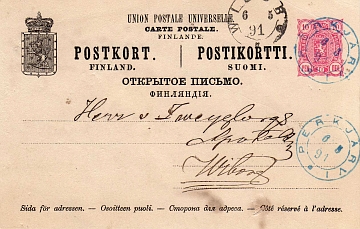 UNION POSTALE UNIVERSELLE.
CARTE POSTALE.
FINLANDE.
POSTKORT. POSTIKORTTI.
FINLAND. SUOMI.
ОТКРЫТОЕ ПИСЬМО.
ФИНЛЯНДІЯ.
6 5
91
10 10
PERKJÄRVI
6 5
91
Herr v
Wiborg
Sida för adressen. — Osoitteen puoli. — Сторона для адреса. — Côté réservé à l'adresse.